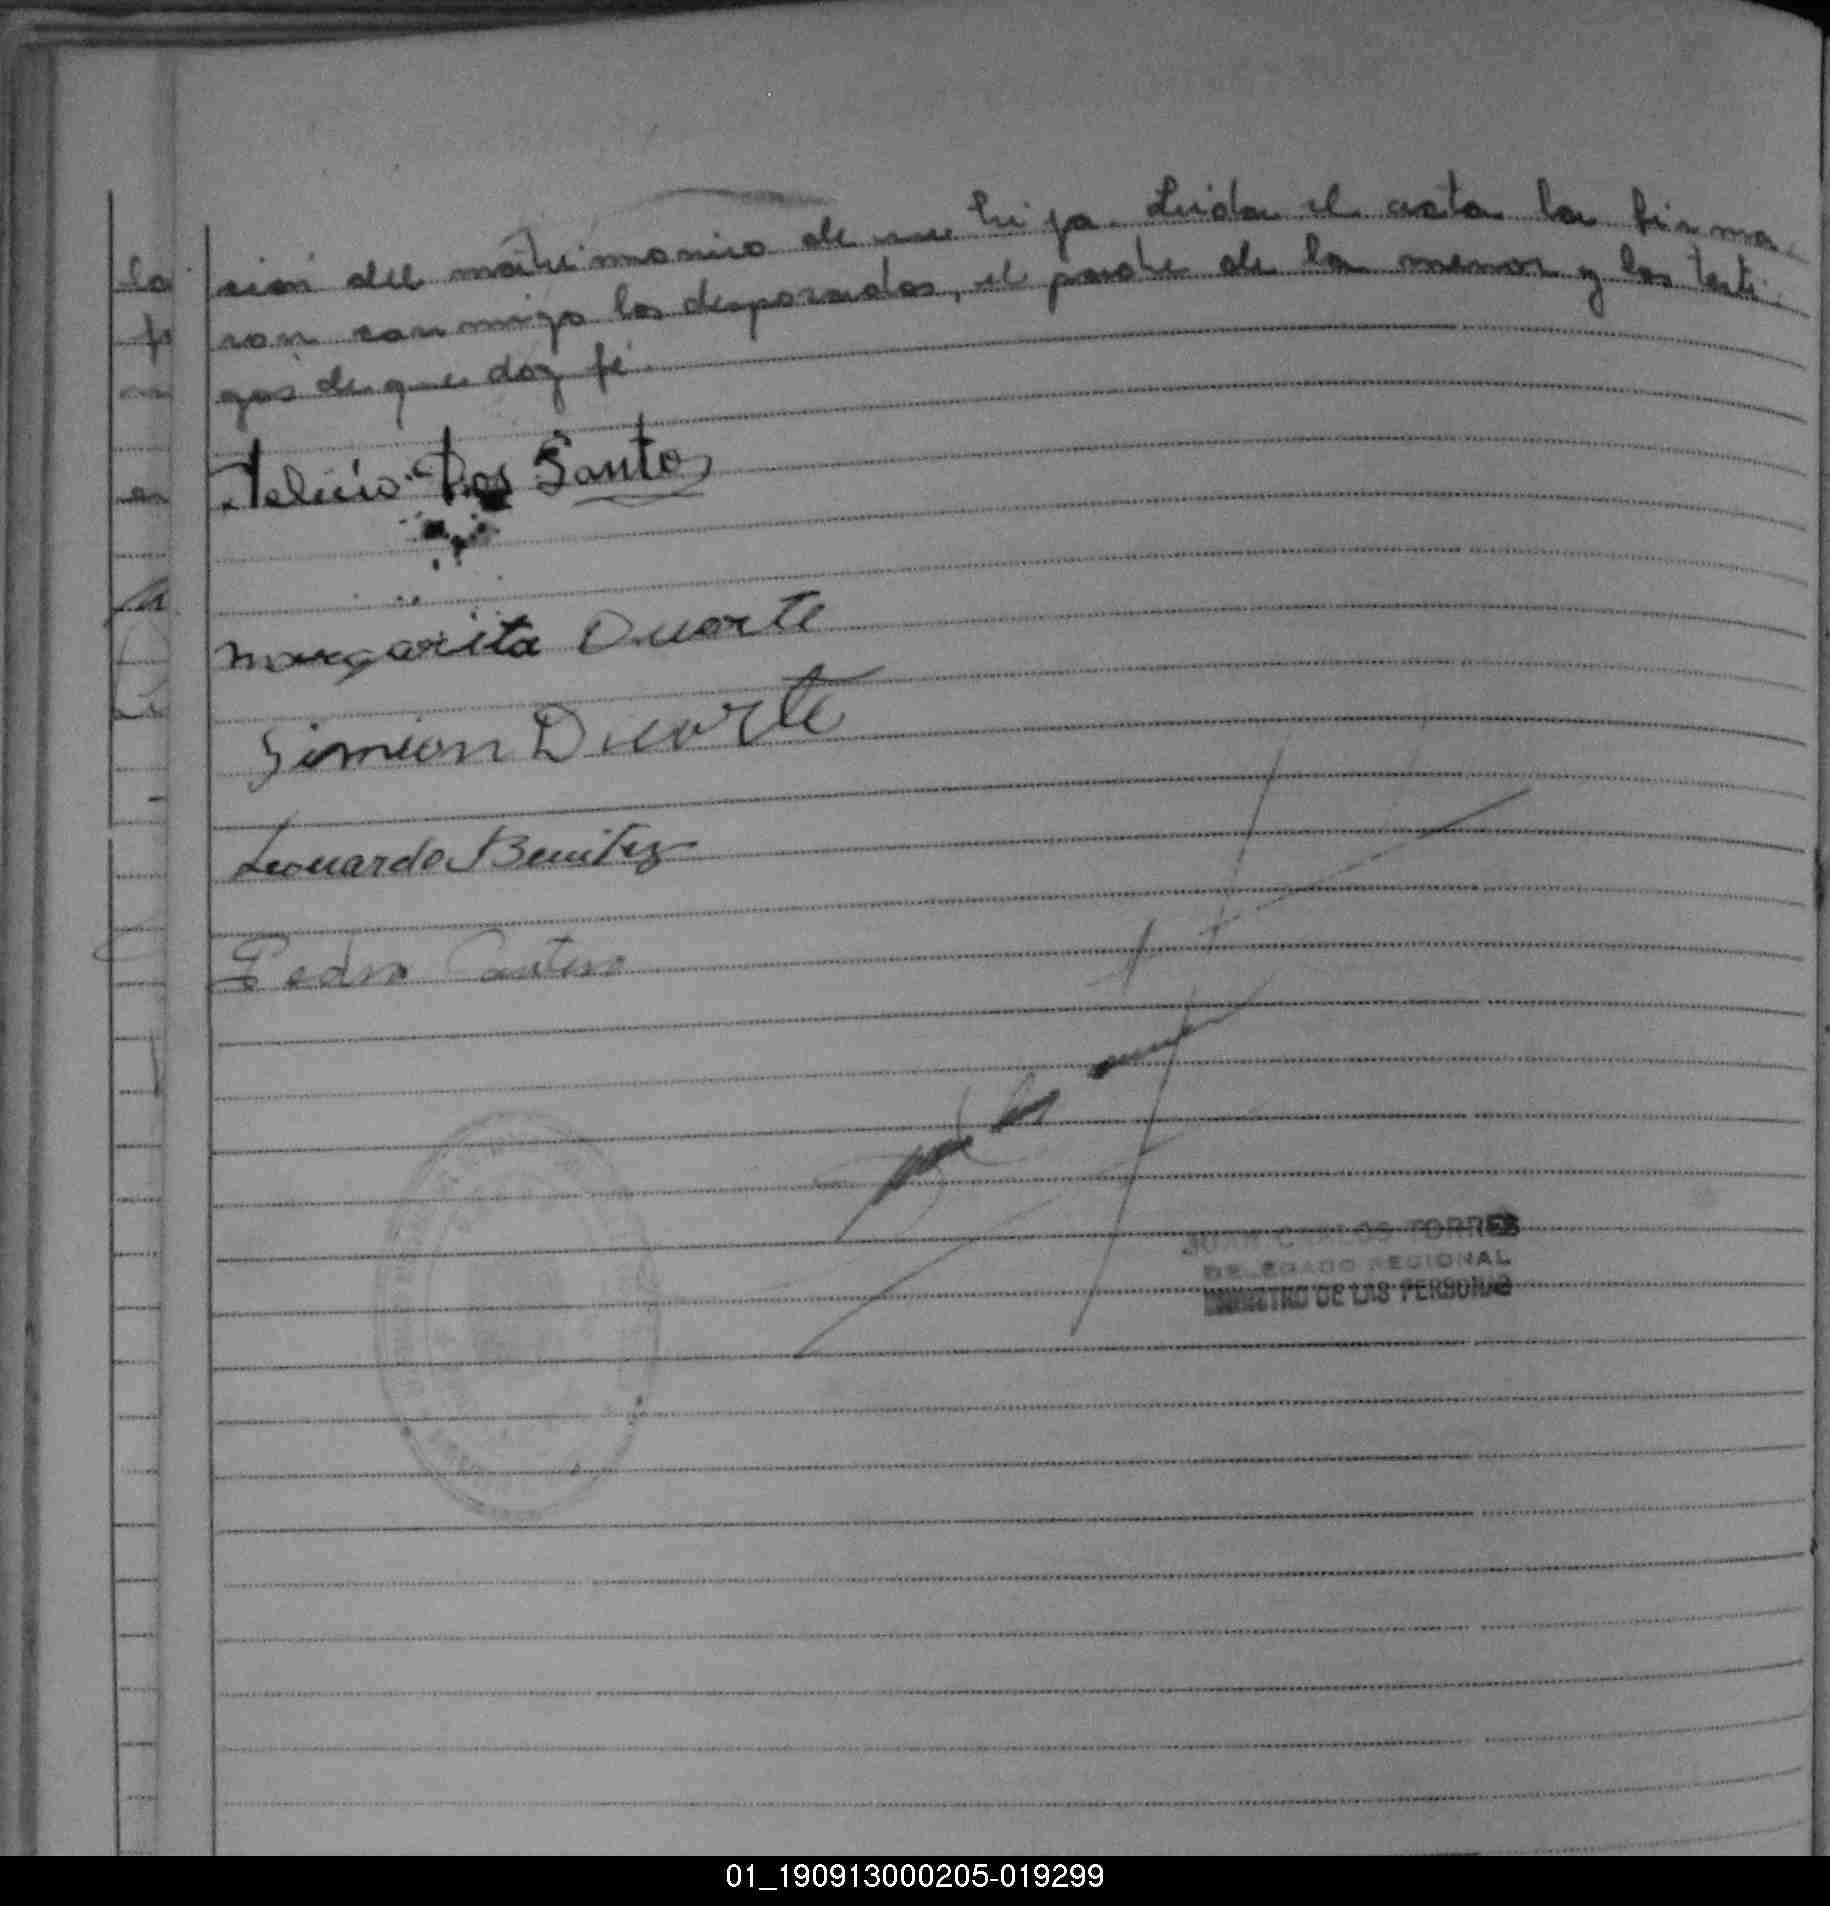 ción del matrimonio de su hija. Leida el acta la firma-
ron conmigo los desposados, el padre de la menor y los testi-
gos de que doy fé.
Felicio Dos Santo
Margarita Duarte
Simeon Duarte
Leonardo Benitez
Pedro Cantero
JUAN CARLOS TORRES
DELEGADO REGIONAL
REGISTRO DE LAS PERSONAS
01_190913000205-019299